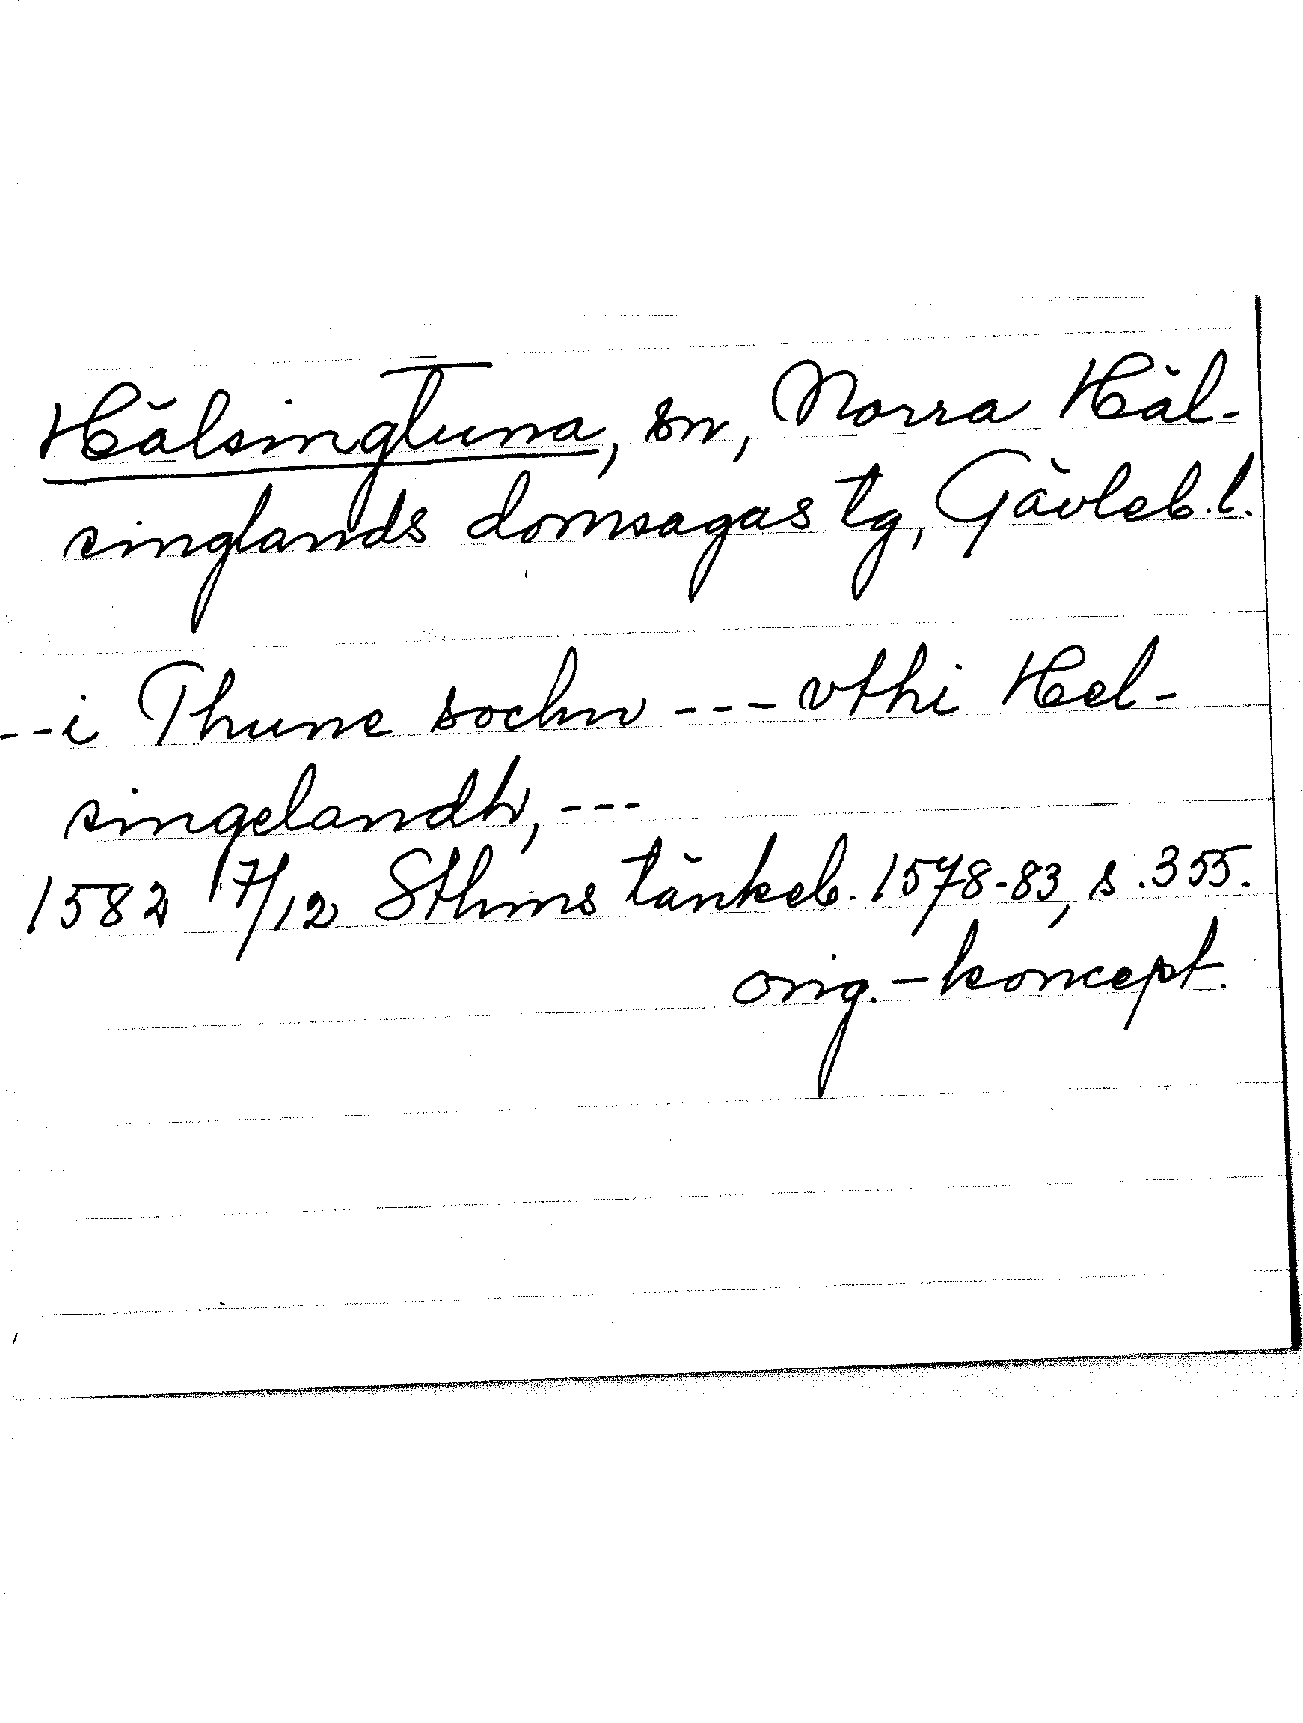 Hälsingtuna, sn, Norra Häl-
singlands domsagas tg, Gävleb. l.
--i Thune sochn --- vthi Hel-
singelandh, ---
1582 17/12 Sthms tänkeb. 1578-83, s. 355.
orig.-koncept.